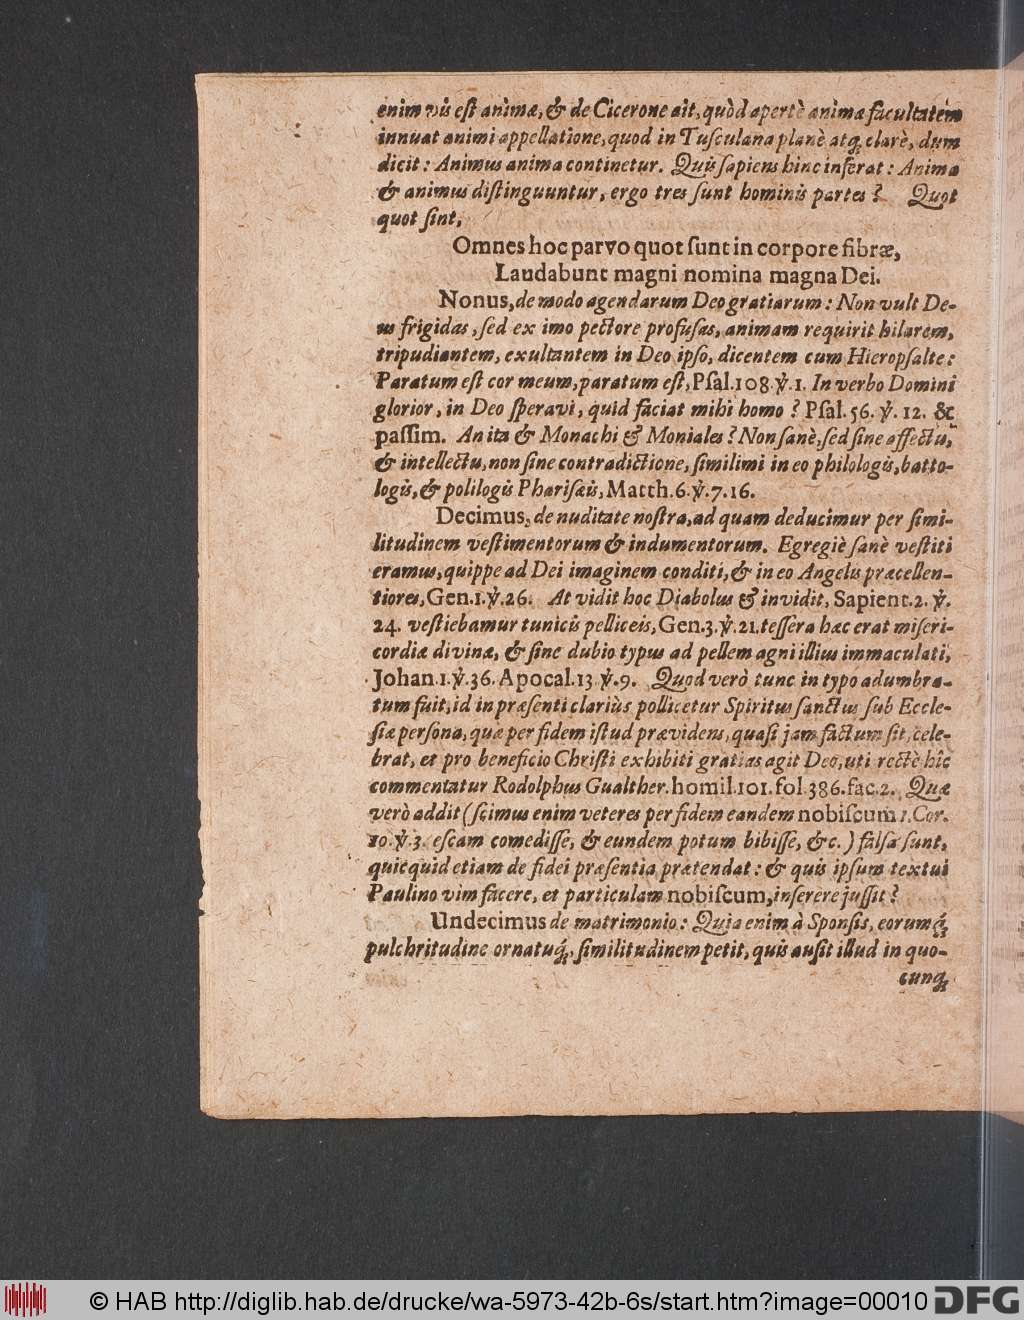 enim vis est animæ, & de Cicerone ait, quòd apertè anima facultatem
innuat animi appellatione, quod in Tusculana planè atq; clarè, dum
dicit: Animus anima continetur. Quis sapiens hinc inferat: Anima
& animus distinguuntur, ergo tres sunt hominis partes? Quot
quot sint,
Omnes hoc parvo quot sunt in corpore fibræ,
Laudabunt magni nomina magna Dei.
Nonus, de modo agendarum Deo gratiarum: Non vult De-
us frigidas, sed ex imo pectore profusas, animam requirit hilarem,
tripudiantem, exultantem in Deo ipso, dicentem cum Hieropsalte:
Paratum est cor meum, paratum est, Psal. 108. ỳ. 1. In verbo Domini
glorior, in Deo speravi, quid faciat mihi homo? Psal. 56. ỳ. 12. &
passim. An ita & Monachi & Moniales? Non sanè, sed sine affectu,
& intellectu, non sine contradictione, simillimi in eo philologis, batto-
logis, & polilogis Pharisæis, Matth. 6. ỳ. 7. 16.
Decimus, de nuditate nostra, ad quam deducimur per simi-
litudinem vestimentorum & indumentorum. Egregiè sanè vestiti
eramus, quippe ad Dei imaginem conditi, & in eo Angelis præcellen-
tiores, Gen. 1. ỳ. 26. At vidit hoc Diabolus & invidit, Sapient. 2. ỳ.
24. vestiebamur tunicis pelliceis, Gen. 3. ỳ. 21. tessera hæc erat miseri-
cordiæ divinæ, & sine dubio typus ad pellem agni illius immaculati,
Johan. 1. ỳ. 36. Apocal. 13. ỳ. 9. Quod verò tunc in typo adumbra-
tum fuit, id in præsenti clariùs pollicetur Spiritus sanctus sub Eccle-
siæ persona, quæ per fidem istud prævidens, quasi jam factum sit, cele-
brat, et pro beneficio Christi exhibiti gratias agit Deo, uti rectè hîc
commentatur Rodolphus Gualther. homil. 101. fol. 386. fac. 2. Quæ
verò addit (scimus enim veteres per fidem eandem nobiscum 1. Cor.
10. ỳ. 3. escam comedisse, & eundem potum bibisse, &c.) falsa sunt,
quicquid etiam de fidei præsentia prætendat: & quis ipsum textui
Paulino vim facere, et particulam nobiscum, inserere jussit?
Undecimus de matrimonio: Quia enim à Sponsis, eorumq́;
pulchritudine ornatuq́;, similitudinem petit, quis ausit illud in quo-
cunq;
© HAB http://diglib.hab.de/drucke/wa-5973-42b-6s/start.htm?image=00010
DFG